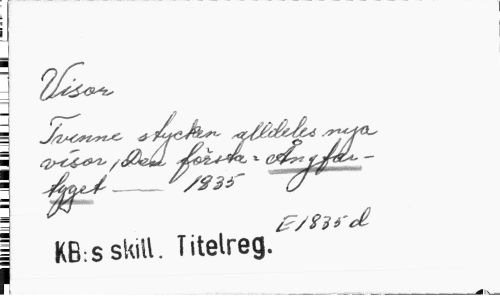 Visor
Tvenne stycken alldeles nya
visor, Den första: Ångfar-
tyget —— 1835
E 1835 d
KB:s skill. Titelreg.